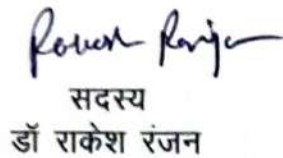 Rakesh Ranjan
सदस्य
डॉ राकेश रंजन